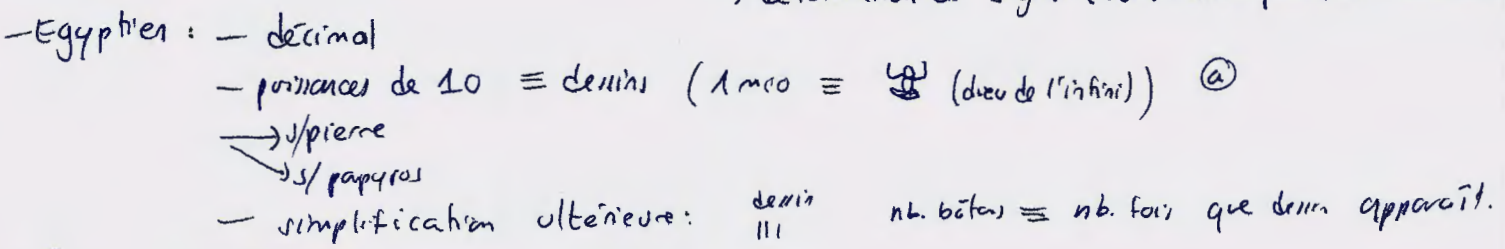 - Egyptien : - décimal
- puissances de 10 ≡ dessins ( 1 mio ≡ (dieu de l'infini)) ⓐ
→ s/pierre
→ s/ papyrus
- simplification ultérieure : dessin ||| nb. bâtons ≡ nb. fois que dessin apparaît.